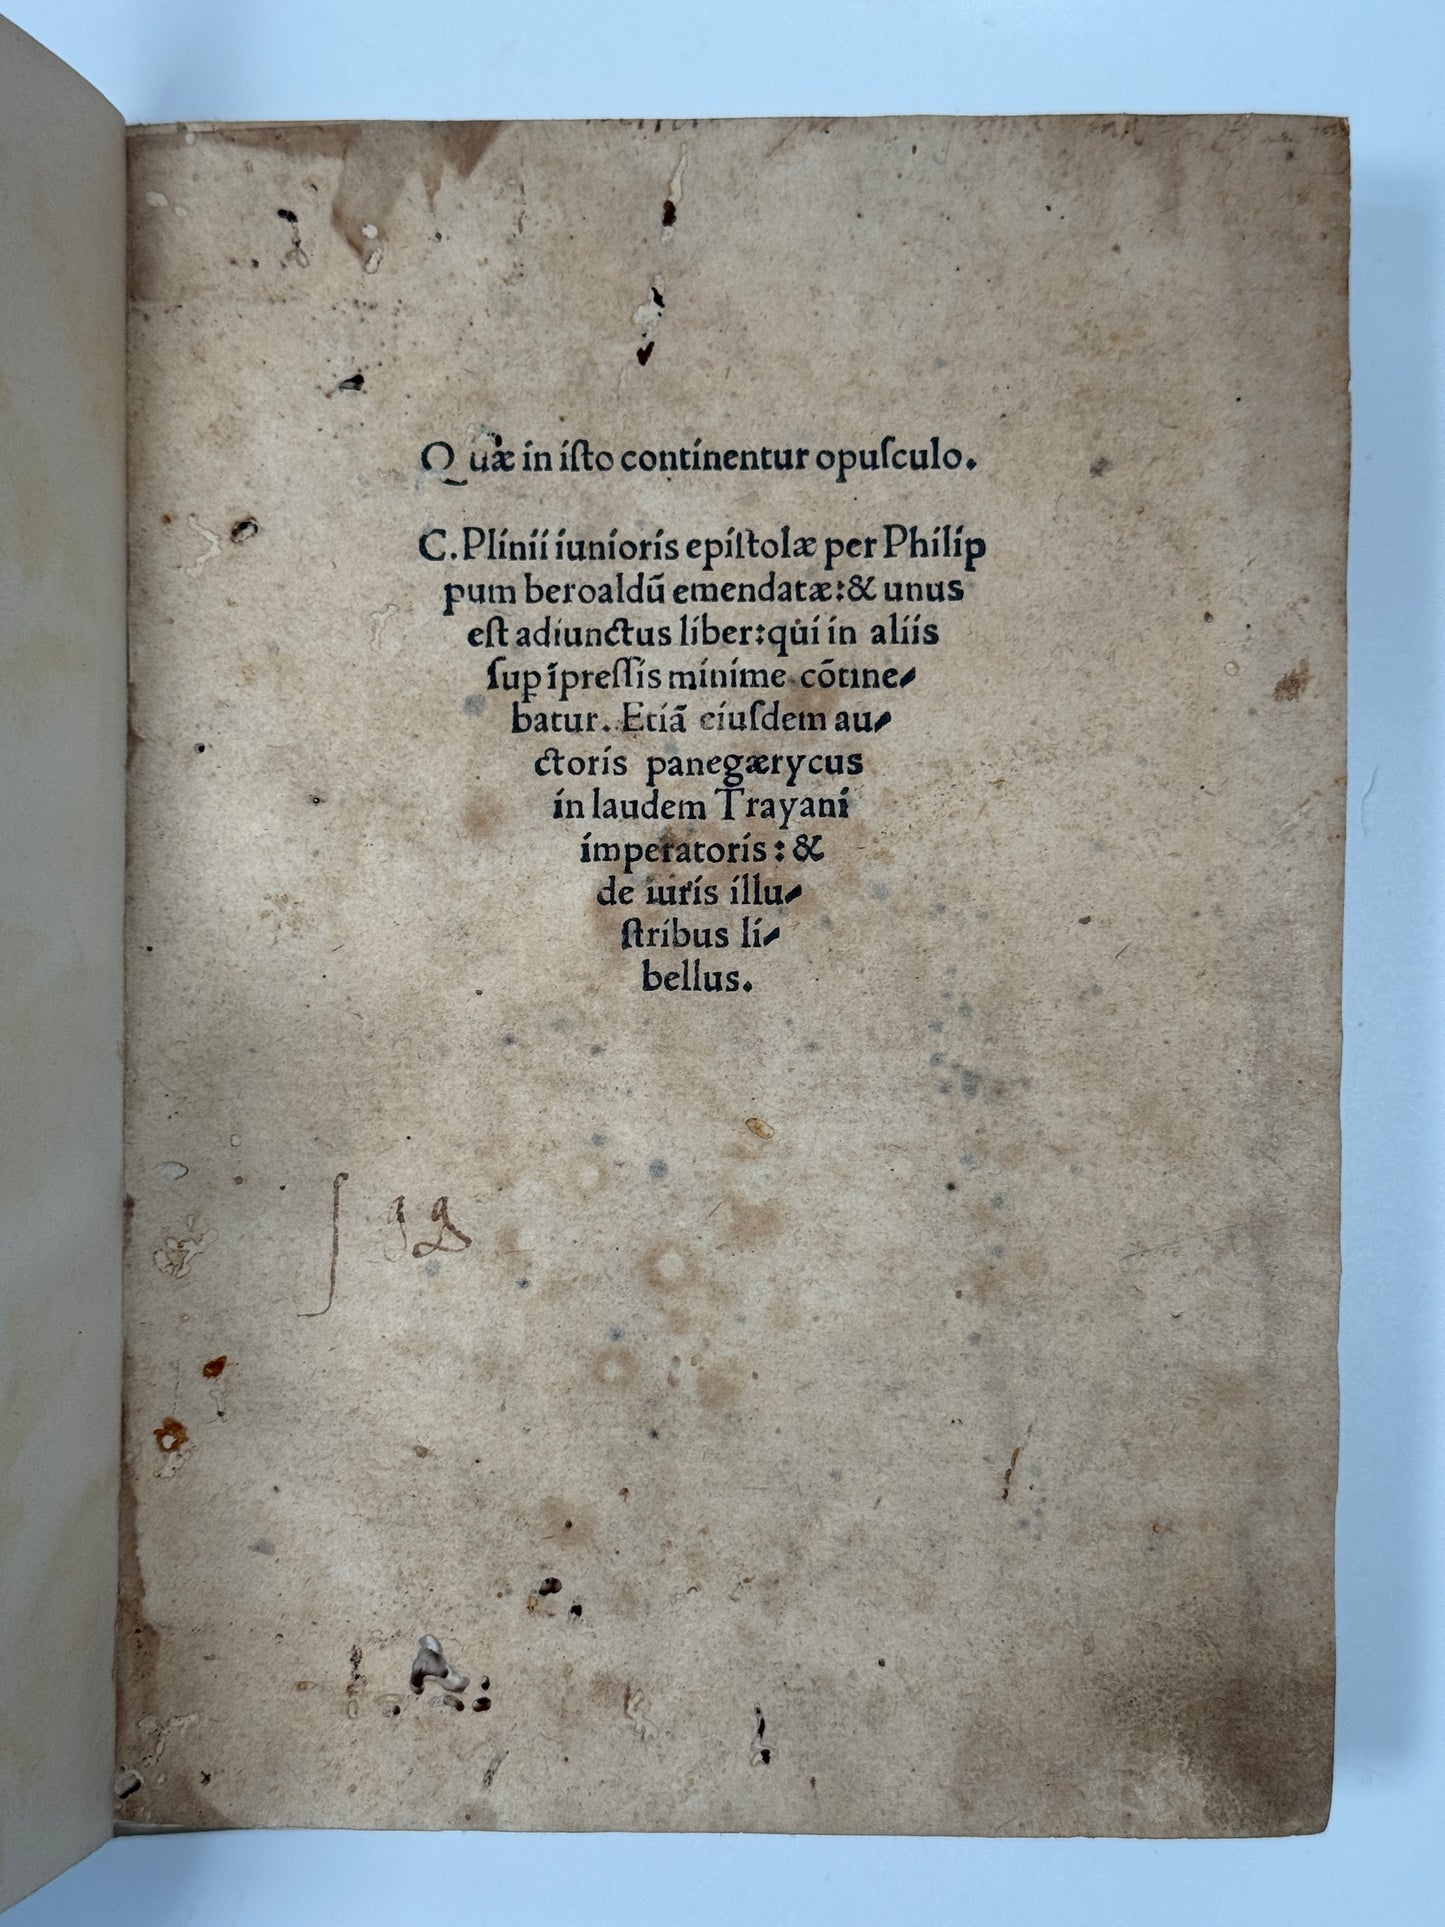 Quæ in iſto continentur opuſculo.
C. Plinii iunioris epiſtolæ per Philip
pum beroaldū emendatæ: & unus
eſt adiunctus liber: qui in aliis
ſup īpreſſis minime cōtine-
batur. Etiā eiuſdem au-
ctoris panegærycus
in laudem Trayani
imperatoris: &
de iuris illu-
ſtribus li-
bellus.